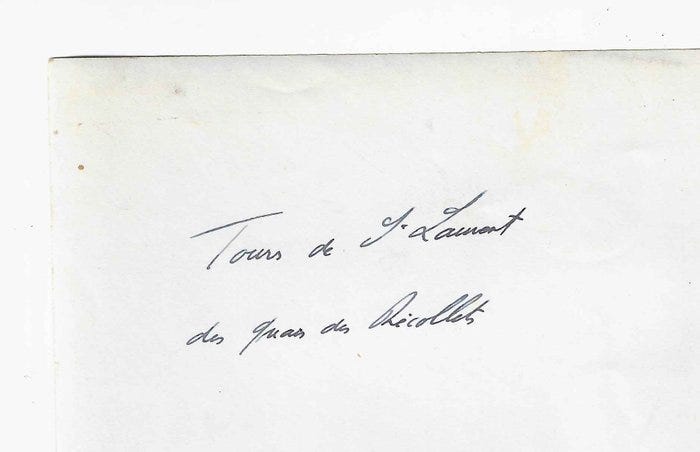 Tours de St Laurent
des quais des Récollets